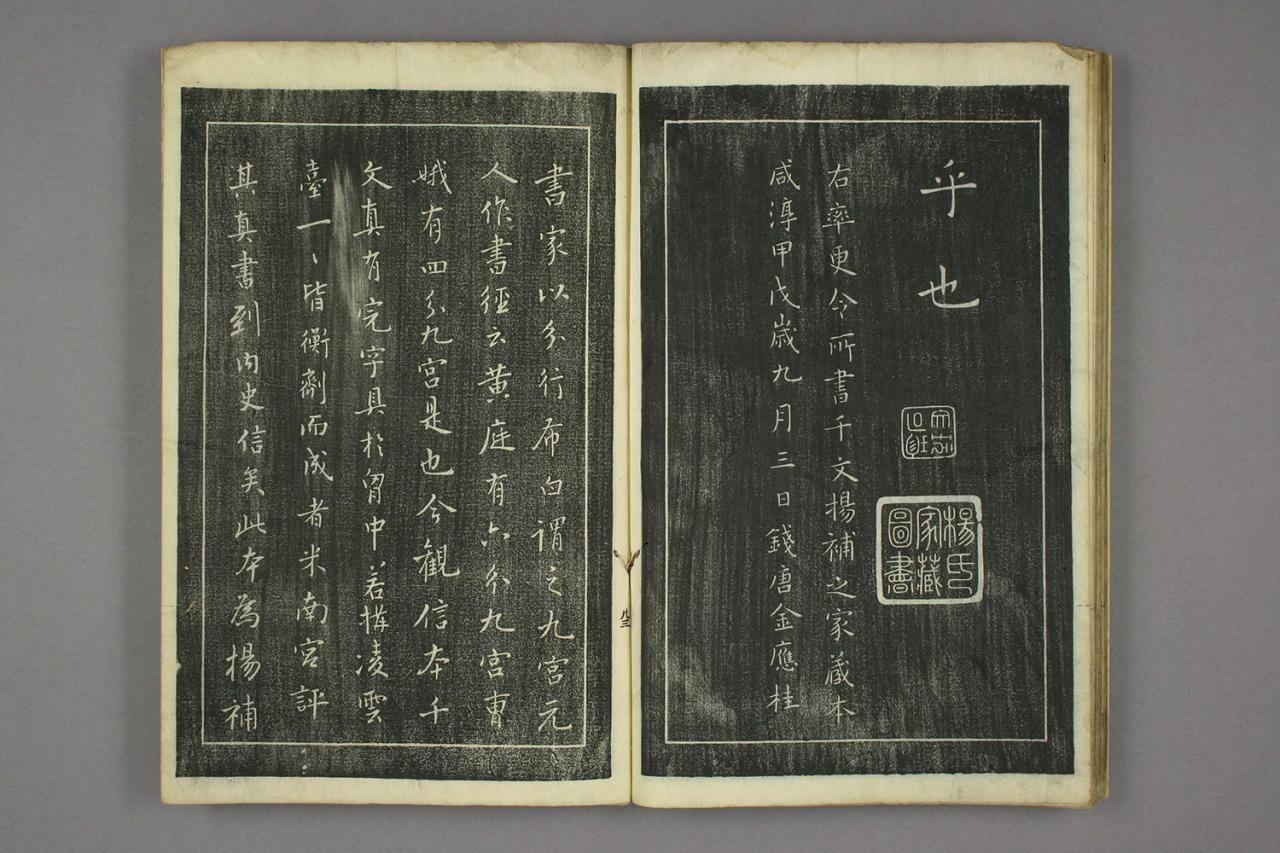 乎也
楊氏家藏圖書
右率更令所書千文楊補之家藏本
咸淳甲戌歲九月三日錢唐金應桂
八三
書家以分行布白謂之九宮元
人作書經云黃庭有六分九宮曹
娥有四分九宮是也今觀信本千
文真有完字具於胷中若構凌雲
臺一〻皆衡劑而成者米南宮評
其真書到內史信矣此本為楊補